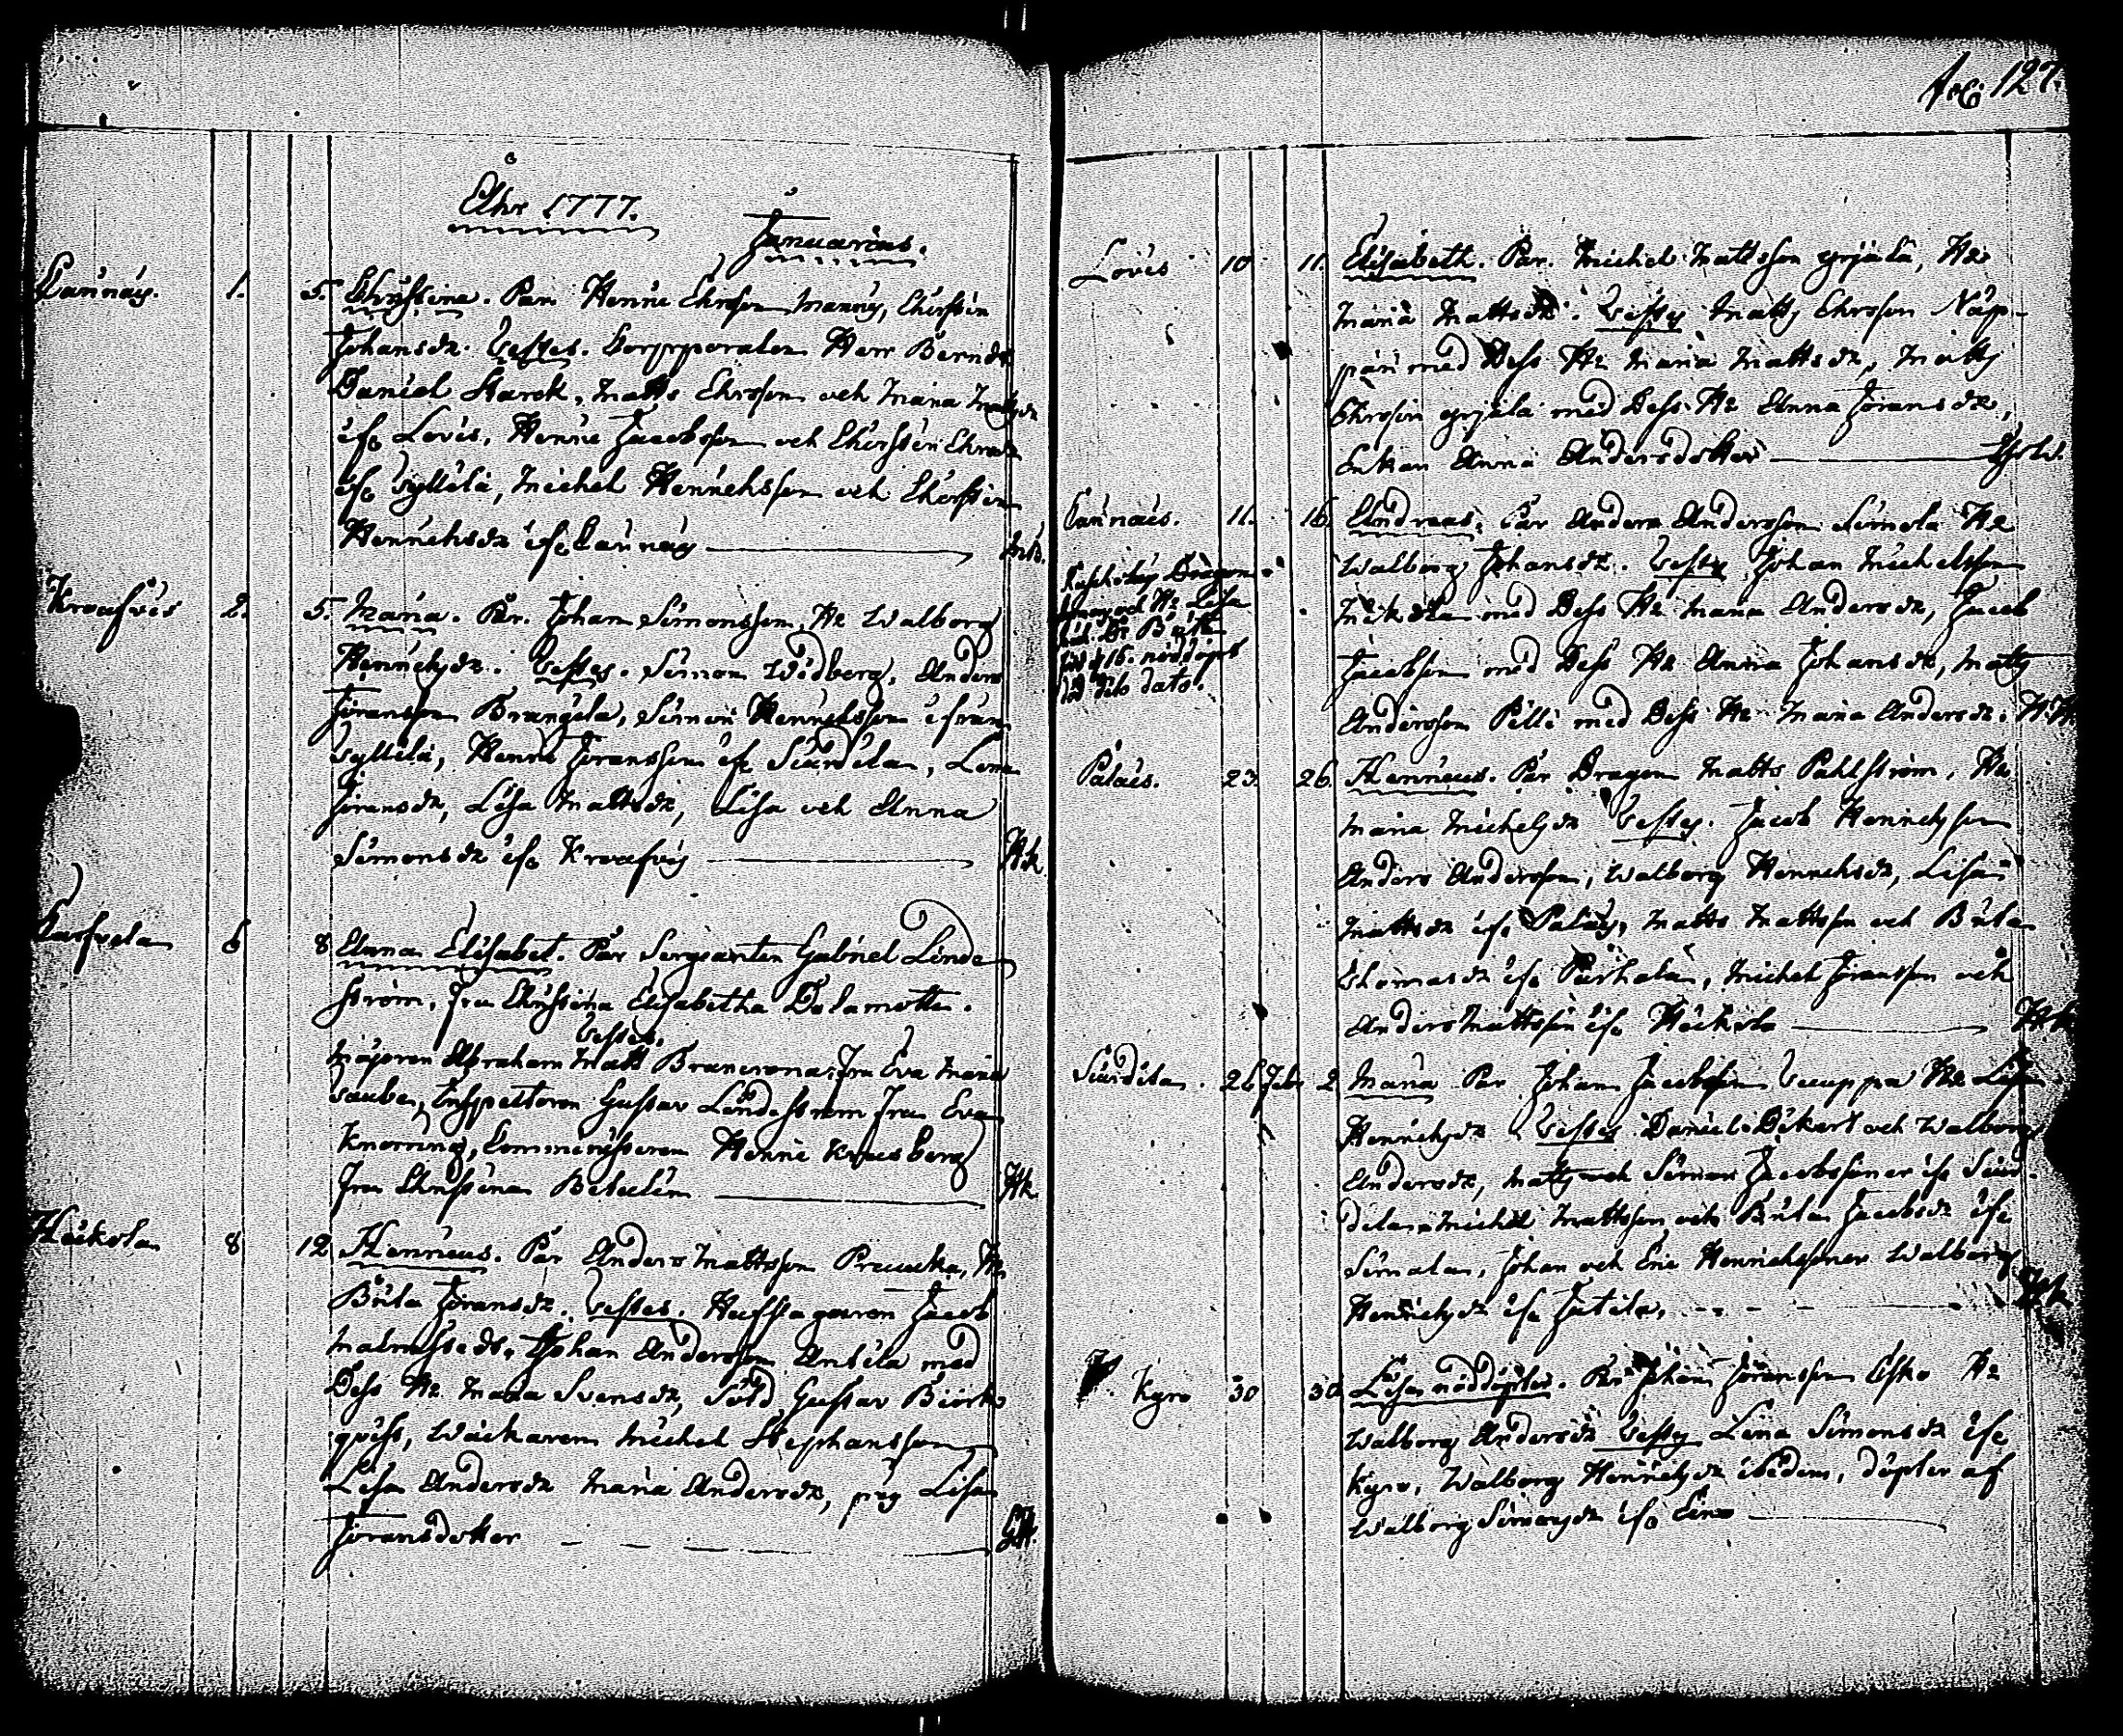 Fol: 127.
Åhr 1777.
Januarius.
1. 5. Christina. Par. Henric Ehrsson Manny, Chirstin
Johansdr. Testes. Corpporalen Herr Berndt
Daniel Starck, Matts Ehrsson och Maria Mattsdr
ifr. Lovis, Henric Jacobsson och Chirstin Ehrsdr
ifr. Syllila, Michel Henrichsson och Chirstin
Henrichsdr ifr.
Kroafvis 2. 5. Maria. Par. Johan Simonsson, Hr Walborg
Henrichsdr. Testes. Simon Widberg, Anders
Jöransson Brangela, Simon Henrichsson ifrån
Syllila, Henric Jöransson ifr Siurdila, Lena
Jöransdr, Lisa Mattsdr, Lisa och Anna
Simonsdr ifr. Kroafvis Hk
6 8 Anna Elisabet. Par Sergeanten Gabriel Linde
ström, Fru Christina Elisabetha Delamotte.
Testes.
Majoren Abraham Matt Brunerona, Fru Eva Maria
Taube, Inspectoren Gustav Lindeström Fru Eva
Knorring, Commissseren Henric
Fru Christina Hk
Häikola 8 12 Henricus. Par Anders Mattsson Pruuka, Hr
Brita Jöransdr. Testes. Hofslagaren Jacob
Malmstedt, Johan Andersson Anttila med
Dess Hr Maria Svensdr, Sold Gustav Biörk
qvist, Wäckaren Michel Stephansson,
Lisa Andersdr Maria Andersdr, pig Lisa
Jöransdotter
Lovis 10 11. Elisabeth. Par. Michel Mattsson Yrjälä, Hr
Maria Mattsdr. Testes Matts Ehrsson Näp-
päri med Dess Hr Maria Mattsdr, Matts
Ehrsson Yrjälä med Dess Hr Anna Jöransdr,
Enkan Anna Andersdotter
11. 16. Andreas. Par Anders Andersson Simola Hr
Walborg Johansdr. Testes Johan Michelsson
Mikola med Dess Hr Maria Andersdr, Jacob
Jacobsson med Dess Hr Anna Johansdr, Matts
Andersson Pilli med Dess Hr Maria Andersdr.
Dragon
och Hr Lisa
16. nöddöpt
död dito dato.
Palais. 23. 26. Henricus. Par Dragon Matts Pahlström, Hr
Maria Michelsdr Testes. Jacob Henrichsson
Anders Andersson, Walborg Henrichsdr, Lisa
Mattsdr ifr. Palais, Matts Mattsson och Brita
Thomasdr ifr Perhala, Michel Jöransson och
Anders Mattsson ifr Häikola Hk
Siurdila. 26 Febr 2 Maria Par Johan Jacobsson Uuuppa Hr Lisa
Henrichsdr Testes Daniel Dikert och Walborg
Andersdr, Matts och Simon Jacobssöner ifr Siur-
dila, Michel Mattsson och Brita Jacobsdr ifr
Simola, Johan och Eric Henrichssöner Walborg
Henrichsdr ifr Jutila, Hk
Kyrö 30 30. Lisa nöddöpter. Par Johan Jöransson Esko Hr
Walborg Andersdr Testes Lena Simonsdr ifr
Kyrö, Walborg Henrichsdr ibidem, döpter af
Walborg Simonsdr ifr